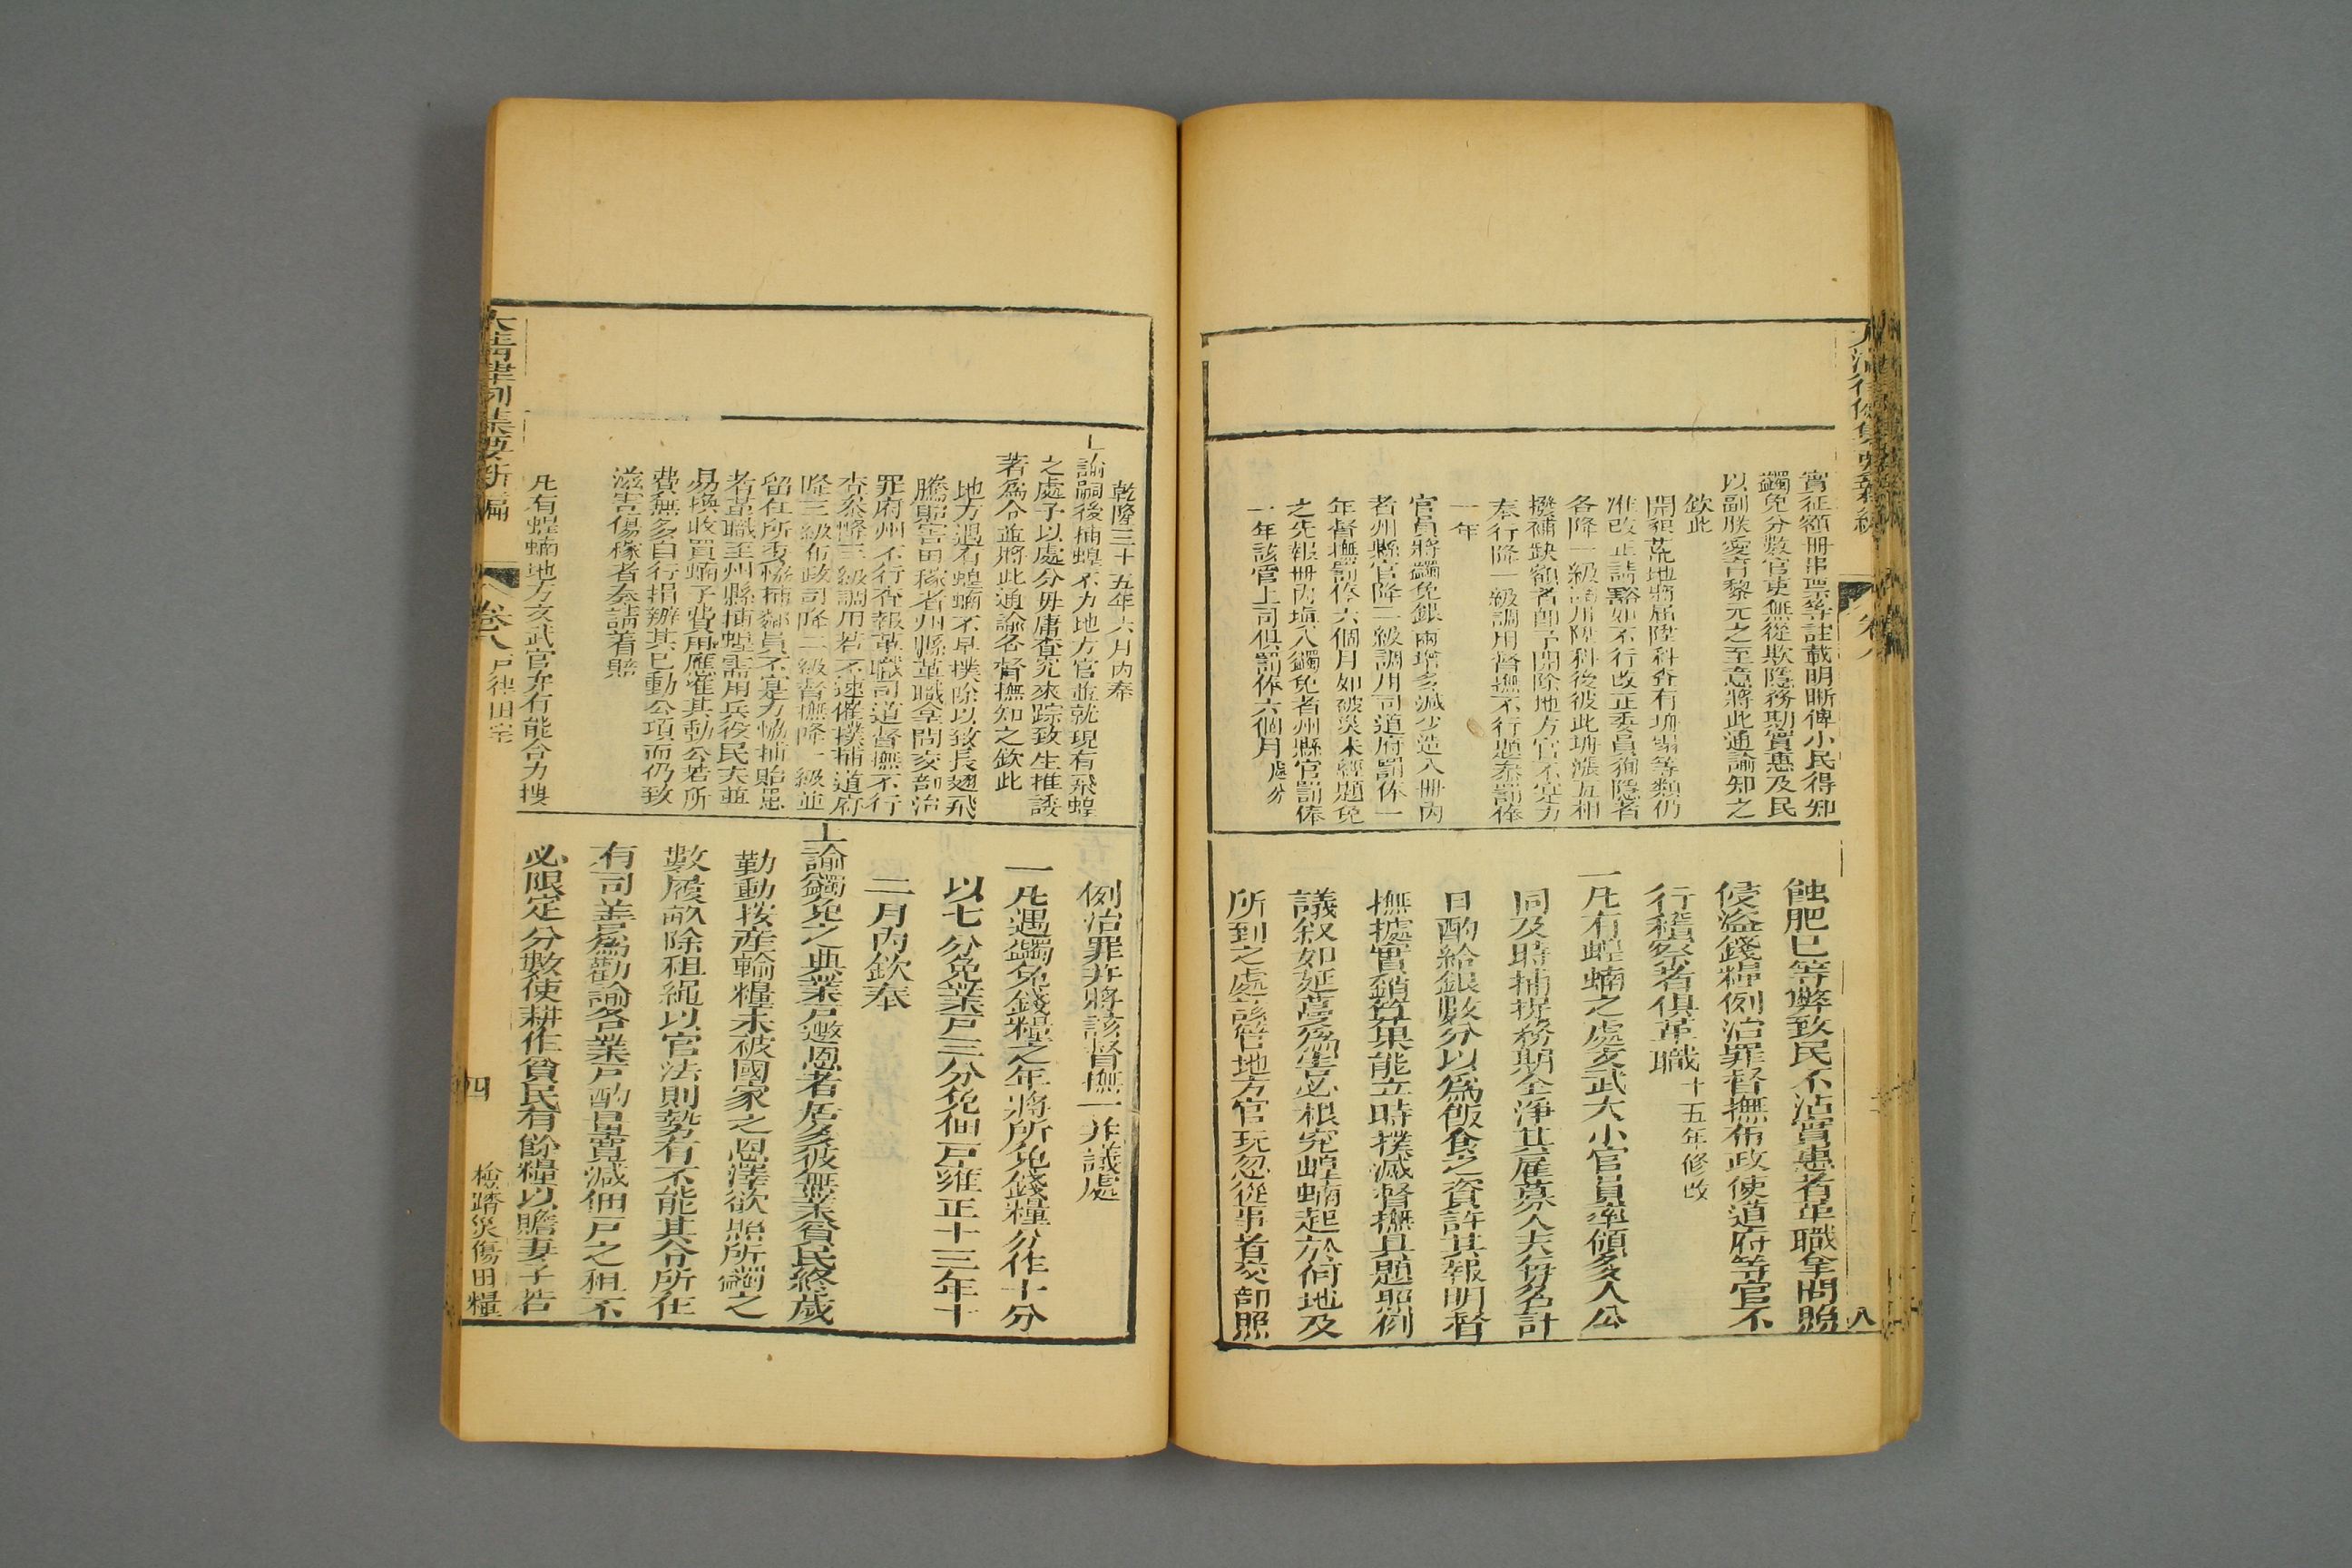 實征額冊串票等註載明晰俾小民得知
蠲免分數官吏無從欺隱務期實惠及民
以副朕愛育黎元之至意將此通諭知之
欽此
開報荒地將届陞科查有坍塌等類仍
准改正請豁如不行改正委員徇隱者
各降一級調用陞科後彼此坍漲互相
撥補缺額者卽予開除地方官不實力
奉行降一級調用督撫不行題叅罰俸
一年
官員將蠲免銀兩增多減少造入冊內
者州縣官降二級調用司道府罰俸一
年督撫罰俸六個月如被災未經題免
之先報冊內塡入蠲免者州縣官罰俸
一年該管上司俱罰俸六個月處分
蝕肥已等弊致民不沾實惠者革職拿問照
侵盜錢糧例治罪督撫布政使道府等官不
行稽察者俱革職十五年修改
一凡有蝗蝻之處文武大小官員率領多人公
同及時捕捉務期全淨其雇募人夫每名計
日酌給銀數分以爲飯食之資許其報明督
撫據實銷算果能立時撲滅督撫具題照例
議敘如延蔓爲害必根究蝗蝻起於何地及
所到之處該管地方官玩忽從事者交部照
八
乾隆三十五年六月內奉
上諭嗣後捕蝗不力地方官並就現有飛蝗
之處予以處分毋庸查究來踪致生推諉
著爲令並將此通諭各督撫知之欽此
地方遇有蝗蝻不早撲除以致長翅飛
騰貽害田稼者州縣革職拿問交部治
罪府州不行查報革職司道督撫不行
查叅降三級調用若不速催撲捕道府
降三級布政司降二級督撫降一級並
留任所委協捕鄰員不實力協捕貽患
者革職至州縣捕蝗需用兵役民夫並
易換收買蝻子費用應准其動公若所
費無多自行捐辦其已動公項而仍致
滋害傷稼者叅請着賠
凡有蝗蝻地方文武官弁有能合力搜
例治罪并將該督撫一并議處
一凡遇蠲免錢糧之年將所免錢糧分作十分
以七分免業戶三分免佃戶雍正十三年十
二月內欽奉
上諭蠲免之典業戶邀恩者居多彼無業貧民終歲
勤動按產輸糧未被國家之恩澤欲照所蠲之
數履畝除租繩以官法則勢有不能其令所在
有司善爲勸諭各業戶酌量寬減佃戶之租不
必限定分數使耕作貧民有餘糧以贍妻子若
大清律例集要新編
卷八
戶律田宅
四
檢踏災傷田糧